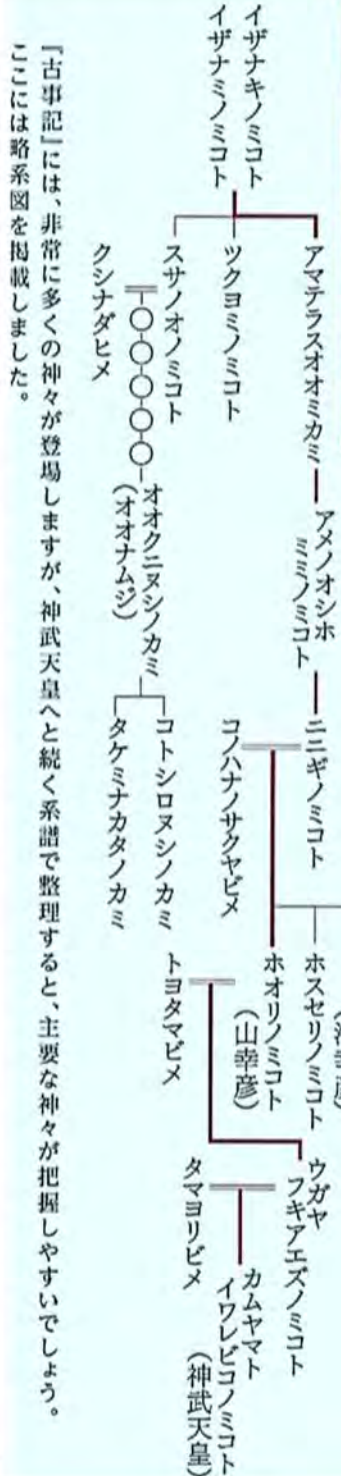 イザナキノミコト
イザナミノミコト
アマテラスオオミカミ
ツクヨミノミコト
スサノオノミコト
クシナダヒメ
アメノオシホ
ミミノミコト
オオクニヌシノカミ
(オオナムジ)
ニニギノミコト
コノハナノサクヤビメ
コトシロヌシノカミ
タケミナカタノカミ
ホスセリノミコト
ホオリノミコト
(山幸彦)
トヨタマビメ
ウガヤ
フキアエズノミコト
タマヨリビメ
カムヤマト
イワレビコノミコト
(神武天皇)
『古事記』には、非常に多くの神々が登場しますが、神武天皇へと続く系譜で整理すると、主要な神々が把握しやすいでしょう。
ここには略系図を掲載しました。